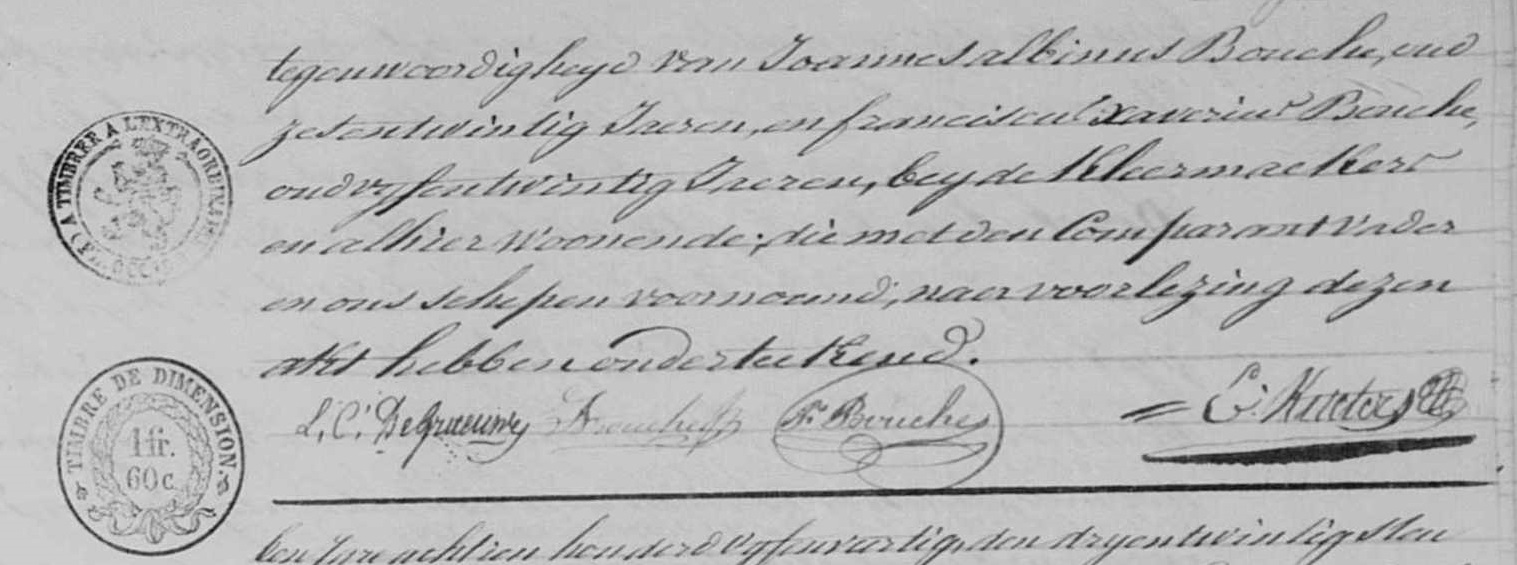 tegenwoordigheyd van Joannes albinus Bouche, oud
zesentwintig Jaeren, en franciscus Xaverius Bouche,
oud vyfentwintig Jaeren, beyde Kleermaekers
en alhier woonende; die met den Comparant Vader
en ons schepen voornoemd, naer voorlezing dezen
akt hebben onderteekend.
L. C. De Graeuwe Bouche F. Bouche C.
een Jare achtien honderd vyfenvartig, den dryentwintigsten
A TIMBRER A L'EXTRAORDINAIRE
TIMBRE DE DIMENSION.
1 fr.
60 c.